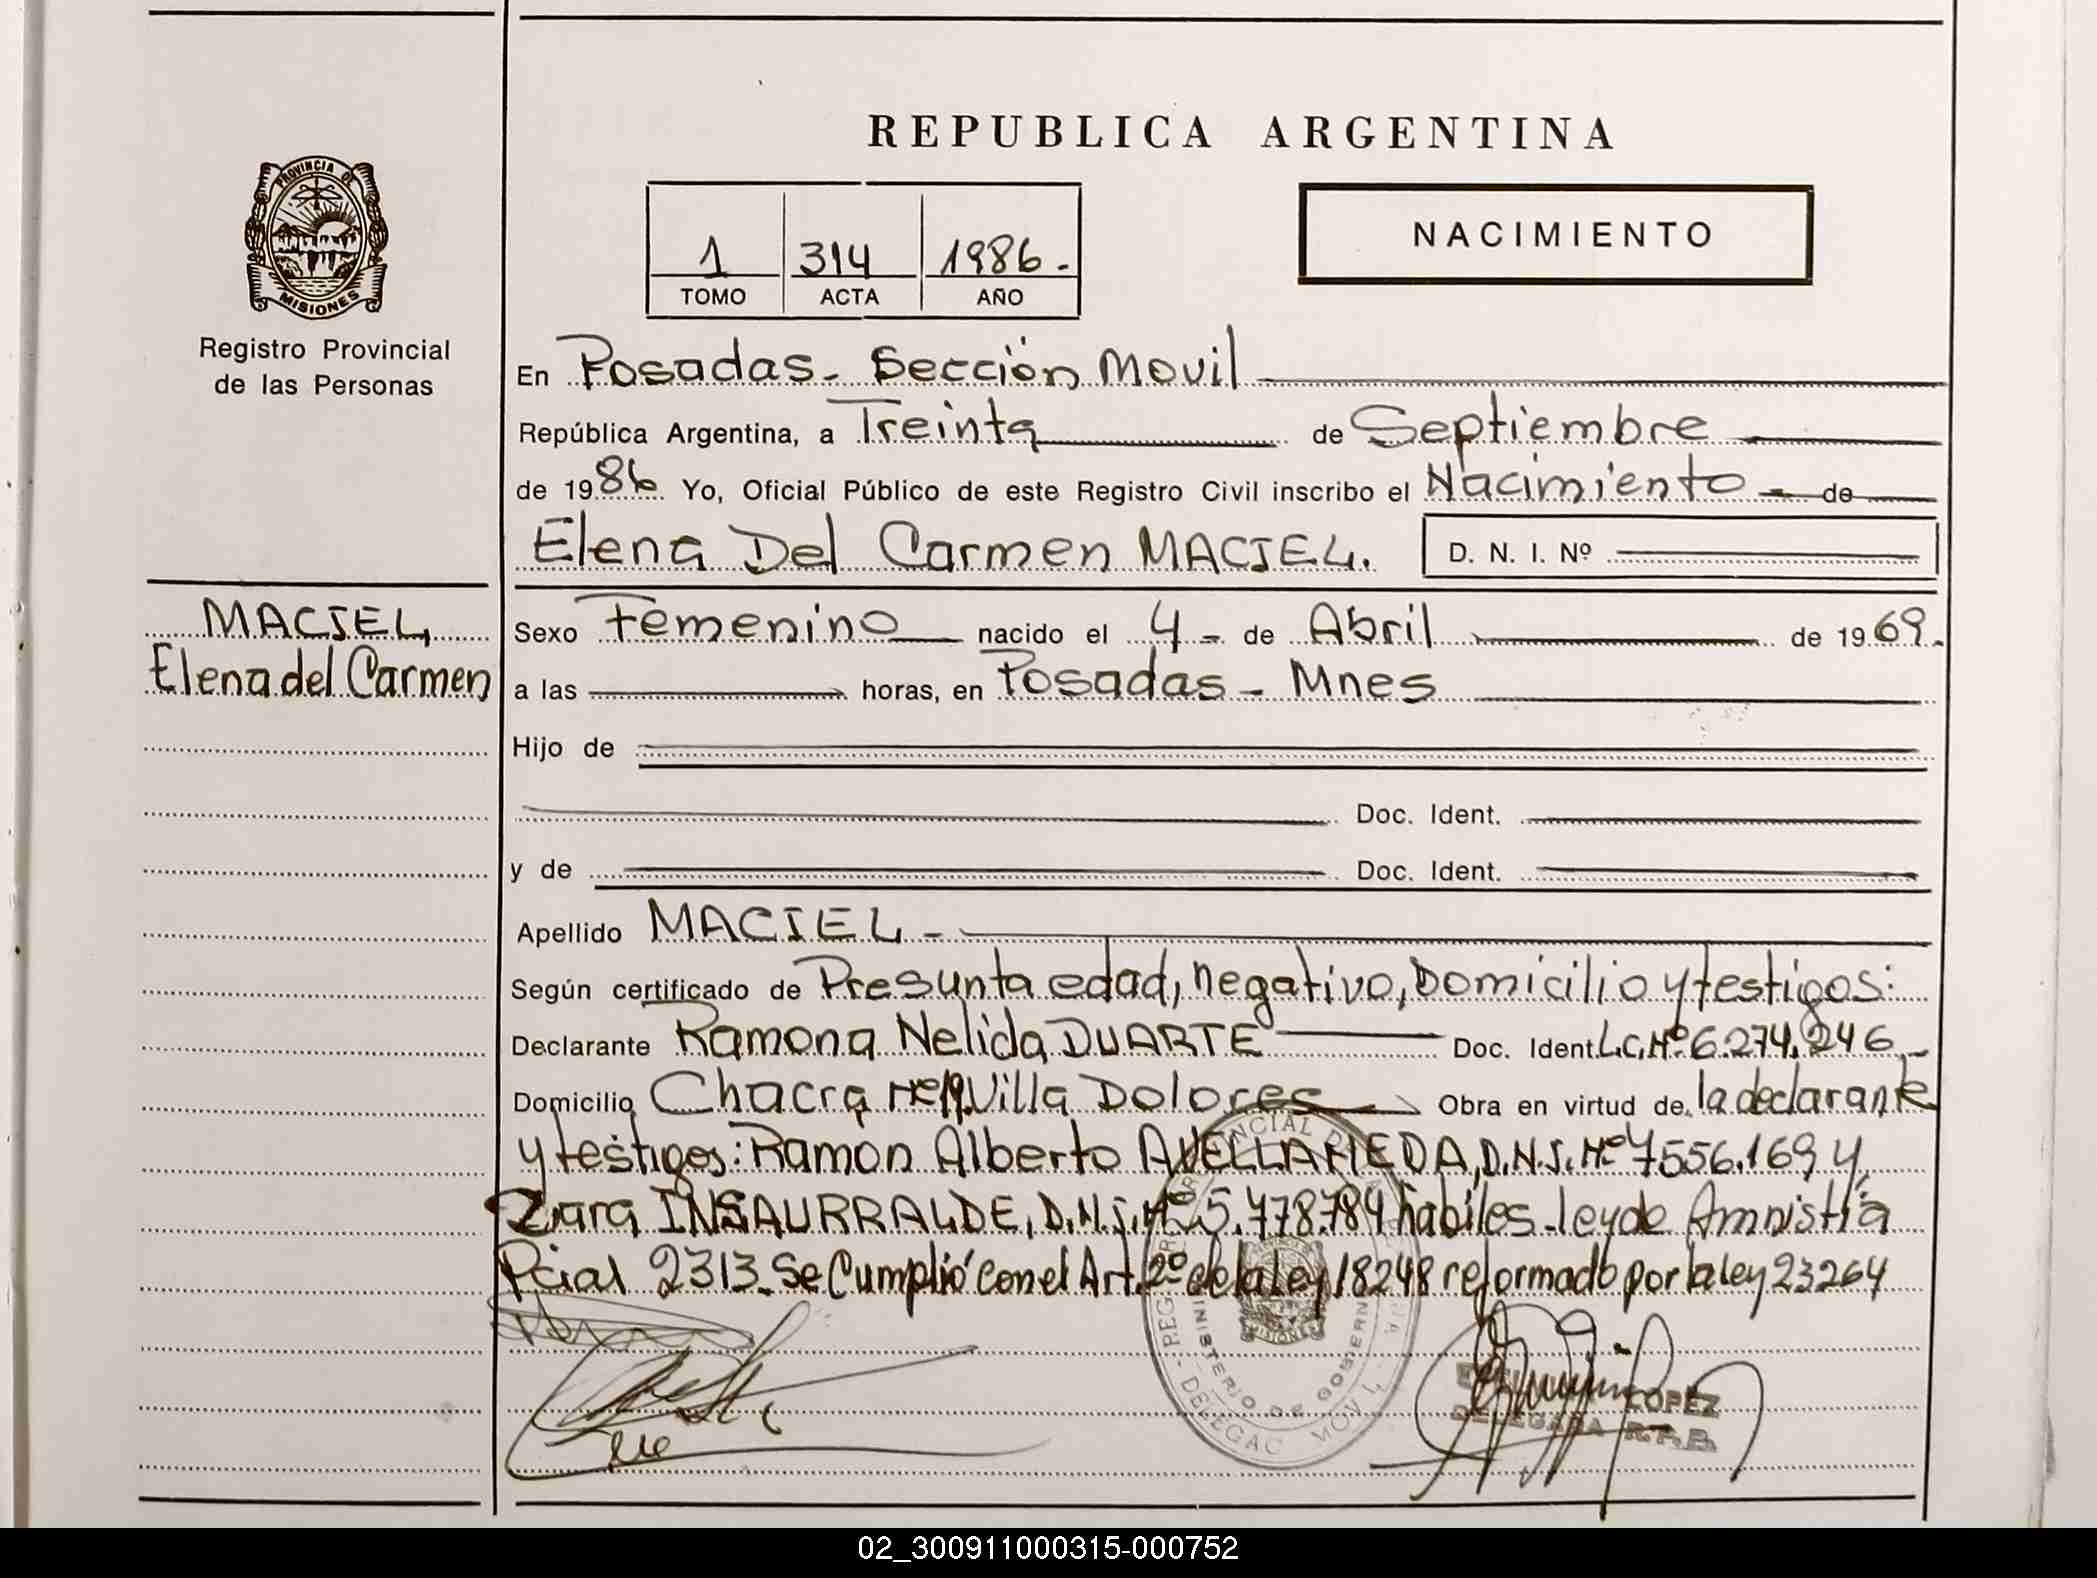 REPUBLICA ARGENTINA
PROVINCIA DE
MISIONES
Registro Provincial
de las Personas
1 314 1986.-
TOMO ACTA AÑO
NACIMIENTO
En Posadas- Sección Movil
República Argentina, a Treinta de Septiembre
de 1986 Yo, Oficial Público de este Registro Civil inscribo el Nacimiento - de
Elena Del Carmen MACIEL.
D. N. I. Nº
MACIEL,
Elena del Carmen
Sexo Femenino nacido el 4- de Abril de 1969.
a las horas, en Posadas - Mnes
Hijo de
Doc. Ident.
y de Doc. Ident.
Apellido MACIEL-
Según certificado de Presunta edad, negativo, Domicilio y testigos:
Declarante Ramona Nelida DUARTE Doc. Ident. L.C. Nº 6.274.246-
Domicilio Chacra Nº Villa Dolores Obra en virtud de la declarante
y testigos: Ramon Alberto AVELLANEDA, D.N.I. Nº 7556.169 y
Zara INSAURRALDE, D.N.I. Nº 5.478.784 habiles-ley de Amnistia
Pcial 2313- Se Cumplió con el Art. 2º de la ley 18248 reformado por la ley 23264
MINISTERIO DE GOBIERN
MISIONES
LOPEZ
DELEGADA R.P.P.
02_300911000315-000752